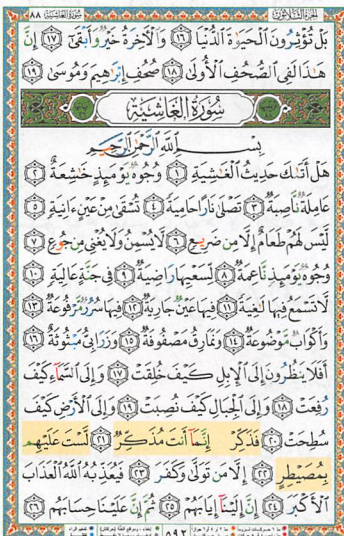 الجزء الثلاثون سورة الغاشية ٨٨
بَلْ تُؤْثِرُونَ ٱلْحَيَوٰةَ ٱلدُّنْيَا ١٦ وَٱلْءَاخِرَةُ خَيْرٌ وَأَبْقَىٰٓ ١٧ إِنَّ
هَٰذَا لَفِى ٱلصُّحُفِ ٱلْأُولَىٰ ١٨ صُحُفِ إِبْرَٰهِيمَ وَمُوسَىٰ ١٩
سُورَةُ الْغَاشِيَةِ
بِسْمِ ٱللَّهِ ٱلرَّحْمَٰنِ ٱلرَّحِيمِ
هَلْ أَتَىٰكَ حَدِيثُ ٱلْغَٰشِيَةِ ١ وُجُوهٌ يَوْمَئِذٍ خَٰشِعَةٌ ٢
عَامِلَةٌ نَّاصِبَةٌ ٣ تَصْلَىٰ نَارًا حَامِيَةً ٤ تُسْقَىٰ مِنْ عَيْنٍ ءَانِيَةٍ ٥
لَّيْسَ لَهُمْ طَعَامٌ إِلَّا مِن ضَرِيعٍ ٦ لَّا يُسْمِنُ وَلَا يُغْنِى مِن جُوعٍ ٧
وُجُوهٌ يَوْمَئِذٍ نَّاعِمَةٌ ٨ لِّسَعْيِهَا رَاضِيَةٌ ٩ فِى جَنَّةٍ عَالِيَةٍ ١٠
لَّا تَسْمَعُ فِيهَا لَٰغِيَةً ١١ فِيهَا عَيْنٌ جَارِيَةٌ ١٢ فِيهَا سُرُرٌ مَّرْفُوعَةٌ ١٣
وَأَكْوَابٌ مَّوْضُوعَةٌ ١٤ وَنَمَارِقُ مَصْفُوفَةٌ ١٥ وَزَرَابِىُّ مَبْثُوثَةٌ ١٦
أَفَلَا يَنظُرُونَ إِلَى ٱلْإِبِلِ كَيْفَ خُلِقَتْ ١٧ وَإِلَى ٱلسَّمَآءِ كَيْفَ
رُفِعَتْ ١٨ وَإِلَى ٱلْجِبَالِ كَيْفَ نُصِبَتْ ١٩ وَإِلَى ٱلْأَرْضِ كَيْفَ
سُطِحَتْ ٢٠ فَذَكِّرْ إِنَّمَآ أَنتَ مُذَكِّرٌ ٢١ لَّسْتَ عَلَيْهِم
بِمُصَيْطِرٍ ٢٢ إِلَّا مَن تَوَلَّىٰ وَكَفَرَ ٢٣ فَيُعَذِّبُهُ ٱللَّهُ ٱلْعَذَابَ
ٱلْأَكْبَرَ ٢٤ إِنَّ إِلَيْنَآ إِيَابَهُمْ ٢٥ ثُمَّ إِنَّ عَلَيْنَا حِسَابَهُم ٢٦
٥٩٢